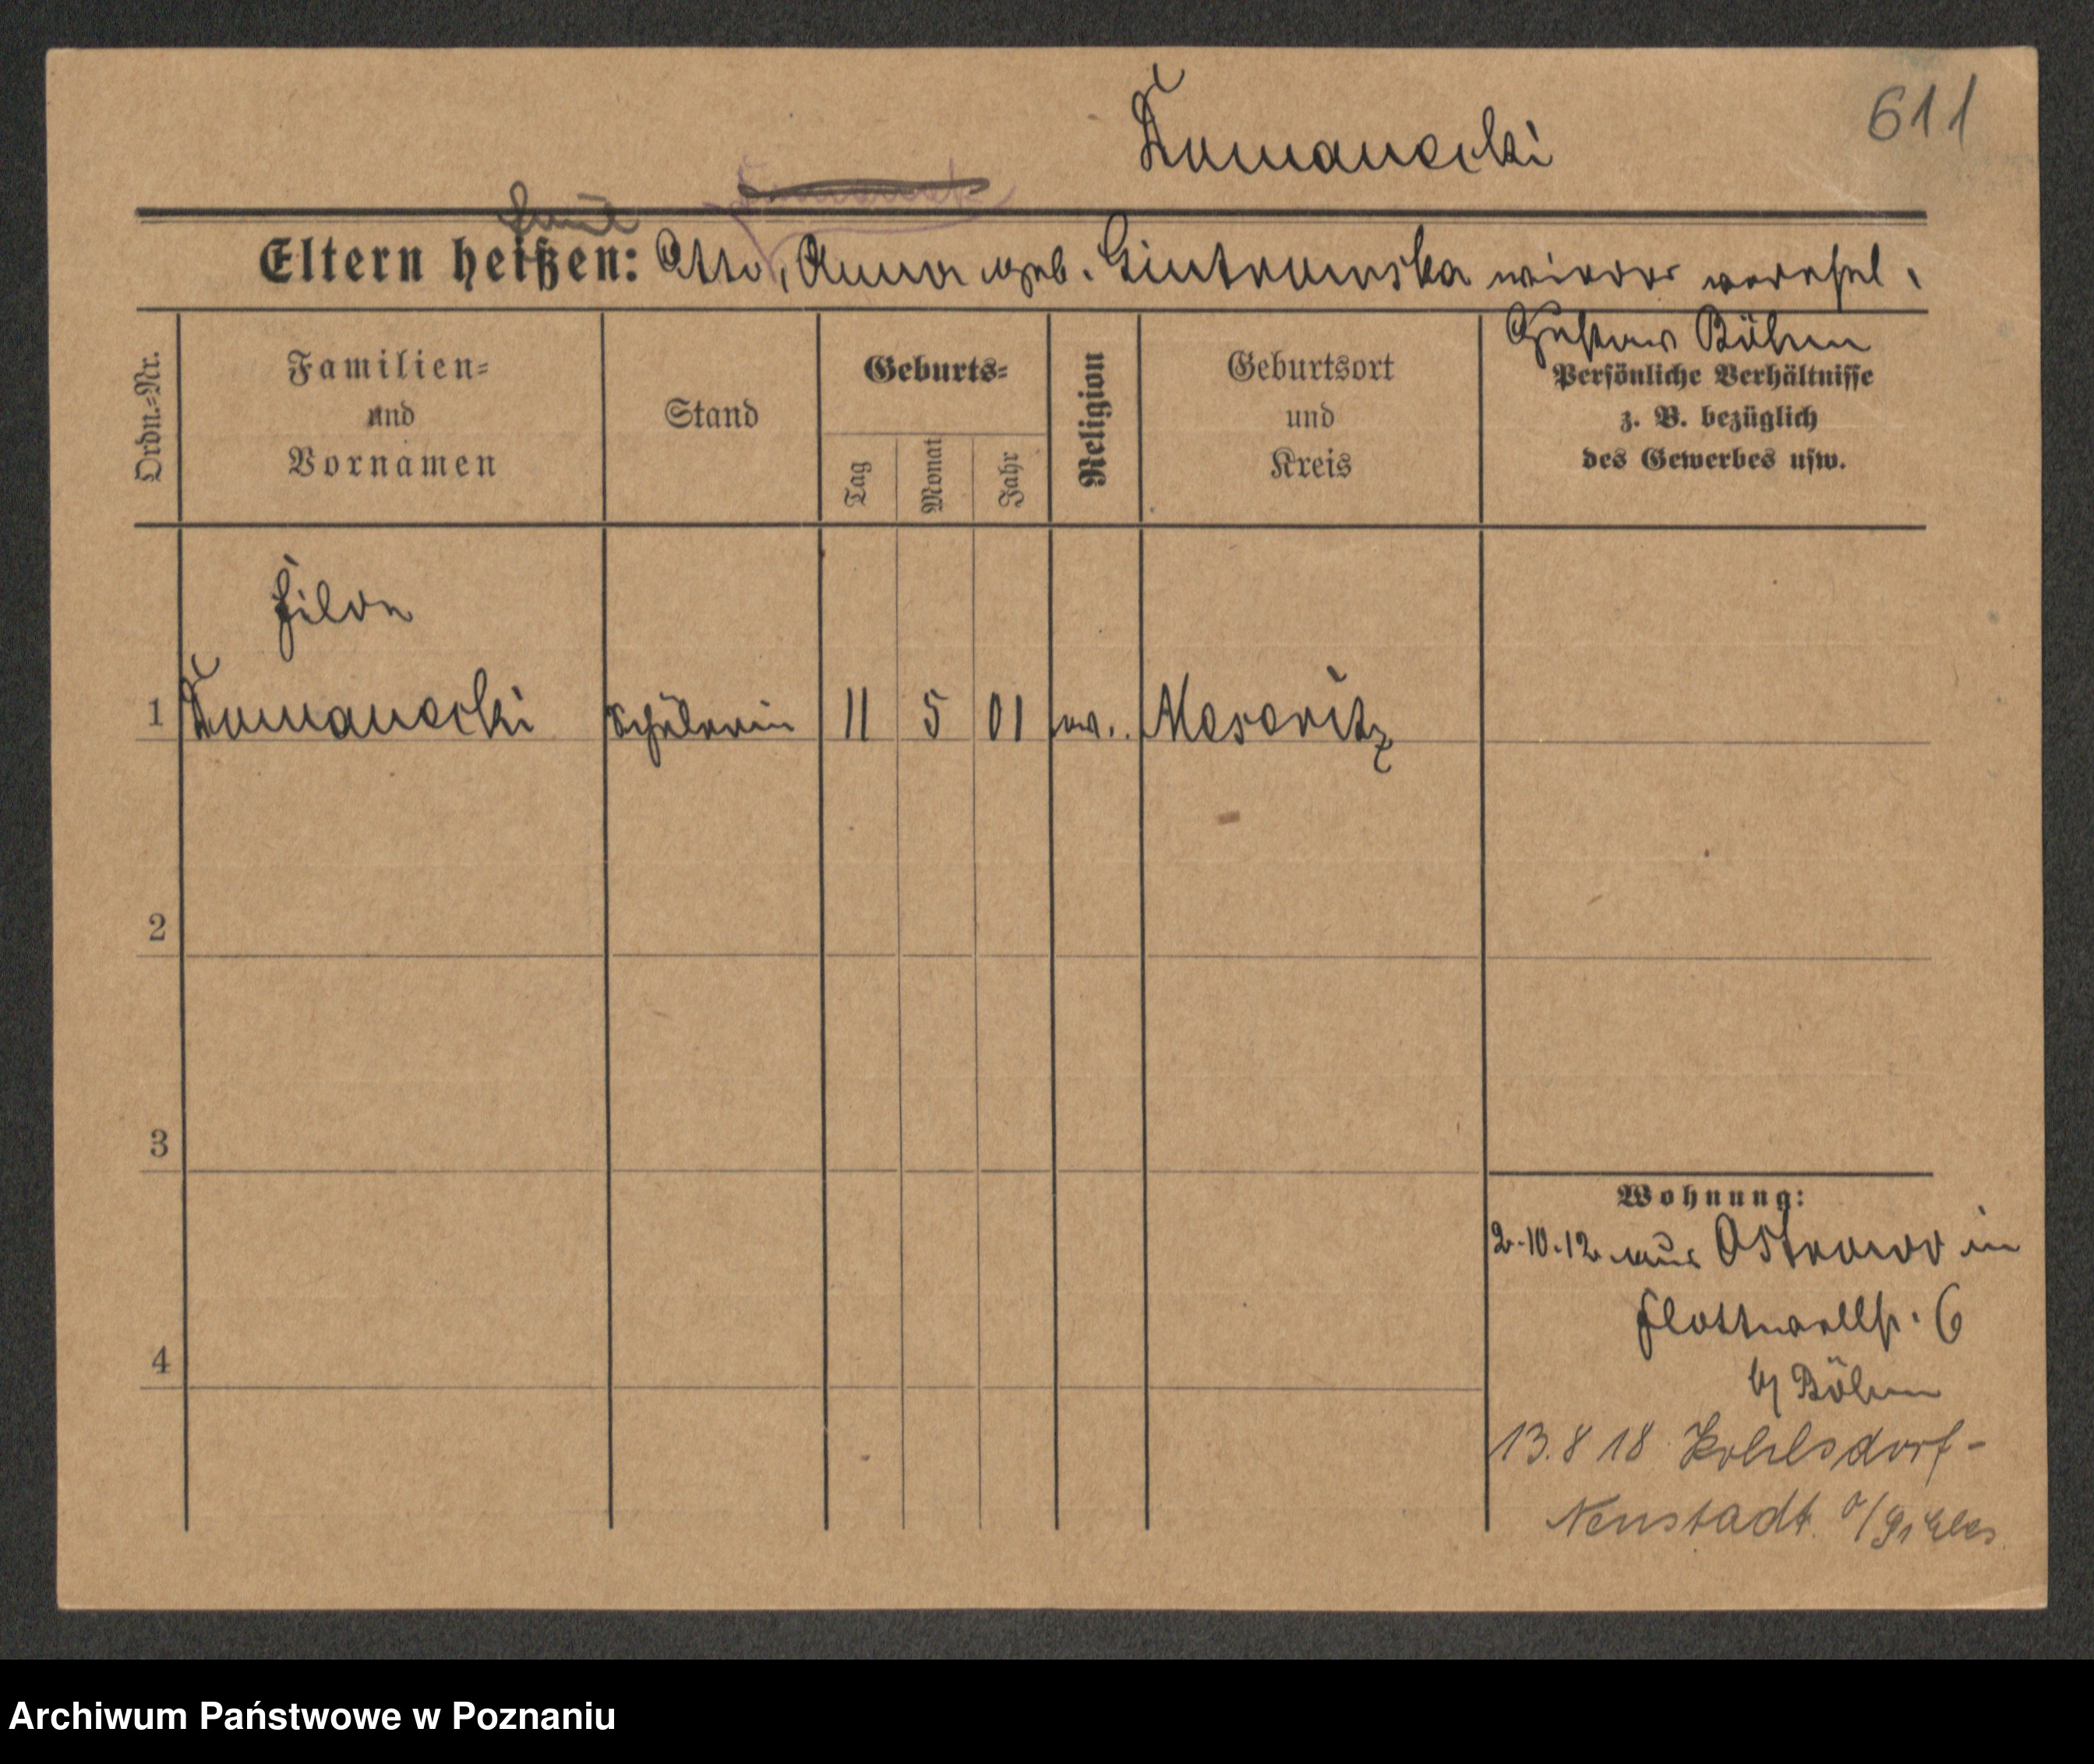 611
Tomanecki
Eltern heißen: Otto, Anna geb. Gintrowska wieder verehel.
Gustav Böhm
Ordn.-Nr.
Familien-
und
Vornamen
Stand
Geburts-
Tag
Monat
Jahr
Religion
Geburtsort
und
Kreis
Persönliche Verhältnisse
z. B. bezüglich
des Gewerbes usw.
1 Tomanecki Schülerin 11 5 01 ev. Meseritz
2
3
4
Wohnung:
2.10.12 aus Ostrowo in
Flottwellstr. 6
b/ Böhm
13.8 18 Kohlsdorf-
Neustadt
Archiwum Państwowe w Poznaniu